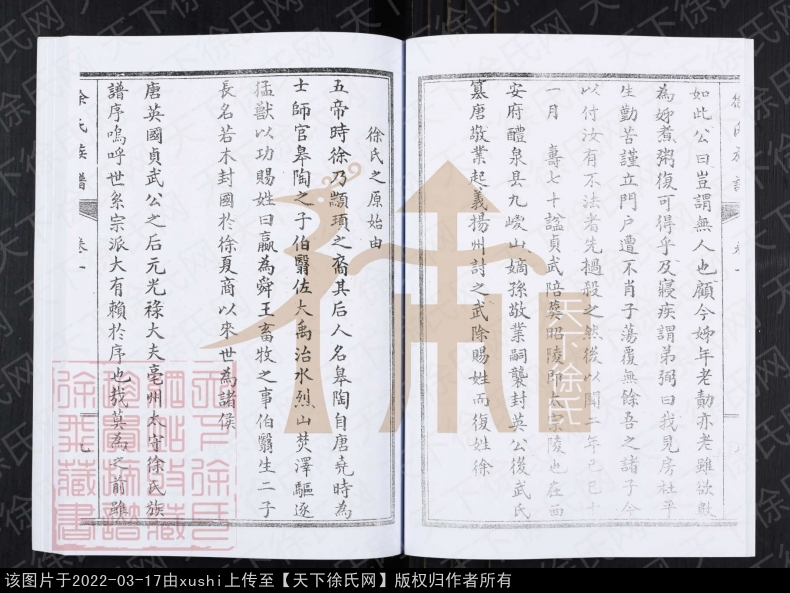 如此公曰豈謂無人也顧今姊年老勣亦老雖欲數
為姊煮粥復可得乎及寢疾謂弟弼曰我見房杜平
生勤苦謹立門户遭不肖子蕩覆無餘吾之諸子今
以付汝有不法者先撾殺之然後以聞二年己巳十
一月 壽七十諡貞武陪葬昭陵即太宗陵也在西
安府醴泉县九嵕山嫡孫敬業嗣襲封英公後武氏
篡唐敬業起義揚州討之武除賜姓而復姓徐
徐氏之原始由
五帝時徐乃顓頊之裔其后人名皋陶自唐堯時為
士師官皋陶之子伯翳佐大禹治水烈山焚澤驅逐
猛獸以功賜姓曰嬴為舜王畜牧之事伯翳生二子
長名若木封國於徐夏商以來世為諸侯
唐英國貞武公之后元光祿大夫亳州太守徐氏族
譜序嗚呼世系宗派大有賴於序也哉莫為之前雖
徐氏族譜 卷一 九
天下徐氏
天下徐氏网
该图片于2022-03-17由xushi上传至【天下徐氏网】版权归作者所有